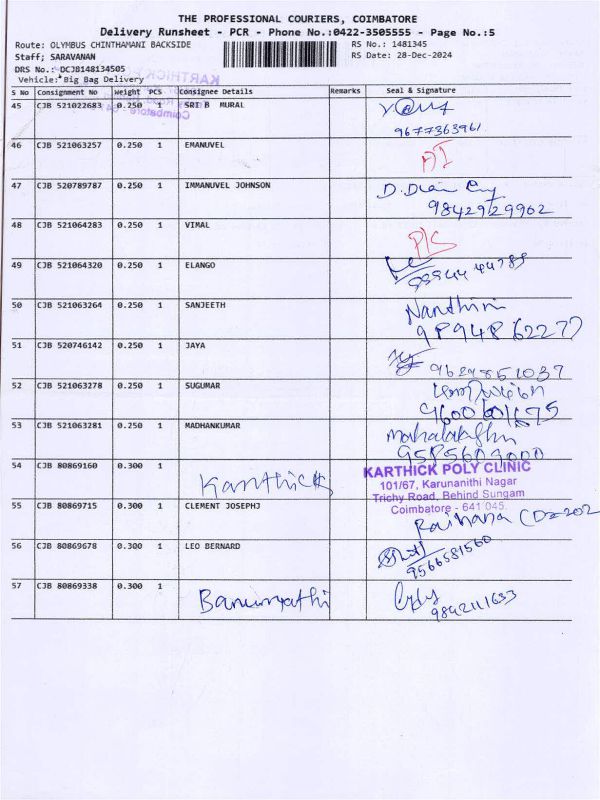 THE PROFESSIONAL COURIERS, COIMBATORE
Delivery Runsheet - PCR - Phone No.:0422-3505555 - Page No.:5
Route: OLYMBUS CHINTHAMANI BACKSIDE RS No.: 1481345
Staff; SARAVANAN RS Date: 28-Dec-2024
DRS No.: DCJB148134505
Vehicle: Big Bag Delivery
S No Consignment No Weight PCS Consignee Details Remarks Seal & Signature
45 CJB 521022683 0.250 1 SRI B MURAL
9677363961
46 CJB 521063257 0.250 1 EMANUVEL
47 CJB 520789787 0.250 1 IMMANUVEL JOHNSON
9842929962
48 CJB 521064283 0.250 1 VIMAL
49 CJB 521064320 0.250 1 ELANGO
50 CJB 521063264 0.250 1 SANJEETH Nandhini
9894862277
51 CJB 520746142 0.250 1 JAYA 9629851037
52 CJB 521063278 0.250 1 SUGUMAR
53 CJB 521063281 0.250 1 MADHANKUMAR
9585609000
54 CJB 80869160 0.300 1 Karthick KARTHICK POLY CLINIC
101/67, Karunanithi Nagar
Trichy Road, Behind Sungam
Coimbatore - 641 045.
55 CJB 80869715 0.300 1 CLEMENT JOSEPHJ
56 CJB 80869678 0.300 1 LEO BERNARD
9566581560
57 CJB 80869338 0.300 1 Banumathi
9842111633